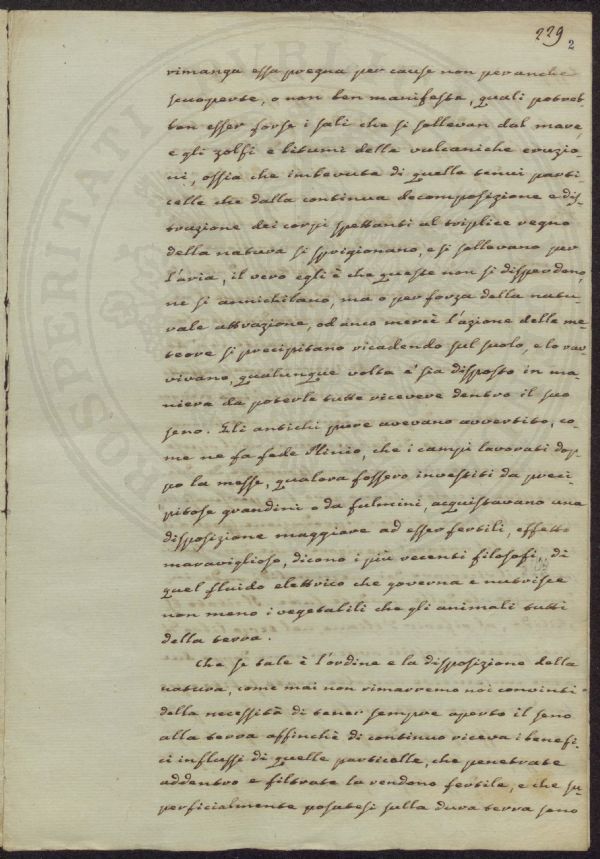 229
2
rimanga essa pregna per cause non per anche
scuoperte, o non ben manifeste, quali potreb-
ben esser forse i sali che si sollevan dal mare,
e gli zolfi e bitumi delle vulcaniche eruzio-
ni, ossia che imbevute di quelle tenui parti-
celle che dalla continua decomposizione e dis-
truzione dei corpi spettanti al triplice regno
della natura si sprigionano, e si sollevano per
l'aria, il vero egli è che queste non si disperdono,
ne si annichilano, ma o per forza della natu-
rale attrazione, od anco mercè l'azione delle me-
teore si precipitano ricadendo sul suolo, e lo rav-
vivano, qualunque volta e' sia disposto in ma-
niera da poterle tutte ricevere dentro il suo
seno. Gli antichi pure avevano avvertito, co-
me ne fa fede Plinio, che i campi lavorati dop-
po la messe, qualora fossero investiti da preci-
pitose grandini o da fulmini, acquistavano una
disposizione maggiore ad esser fertili, effetto
maraviglioso, dicono i più recenti filosofi, di
quel fluido elettrico che governa e nutrisce
non meno i vegetabili che gli animali tutti
della terra.
Che se tale è l'ordine e la disposizione della
natura, come mai non rimarremo noi convinti
della necessità di tener sempre aperto il seno
alla terra affinchè di continuo riceva i benefi-
ci influssi di quelle particelle, che penetrate
addentro e filtrate la rendono fertile, e che su-
perficialmente posatesi sulla dura terra sono
PROSPERITATI